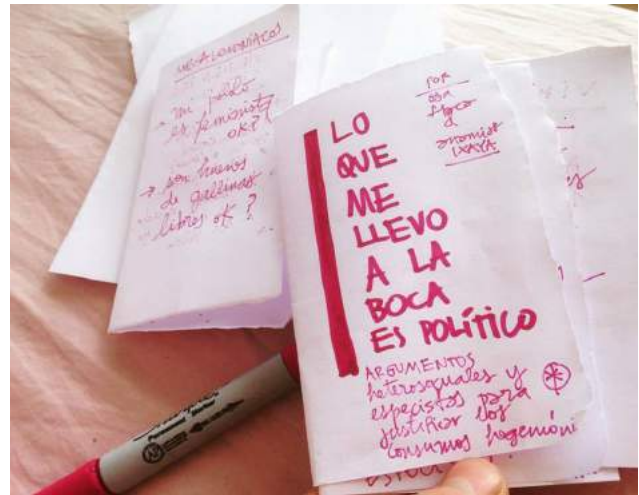 MEGALOMANÍACOS
→ mi pololo
es feminista
OK?!
→ son huevos
de gallinas
libres ok?
LO
QUE
ME
LLEVO
A LA
BOCA
ES POLÍTICO
POR
IXAYA
ARGUMENTOS
heterosexuales y
especistas para
justificar los
consumos hegemóni
Permanent Marker